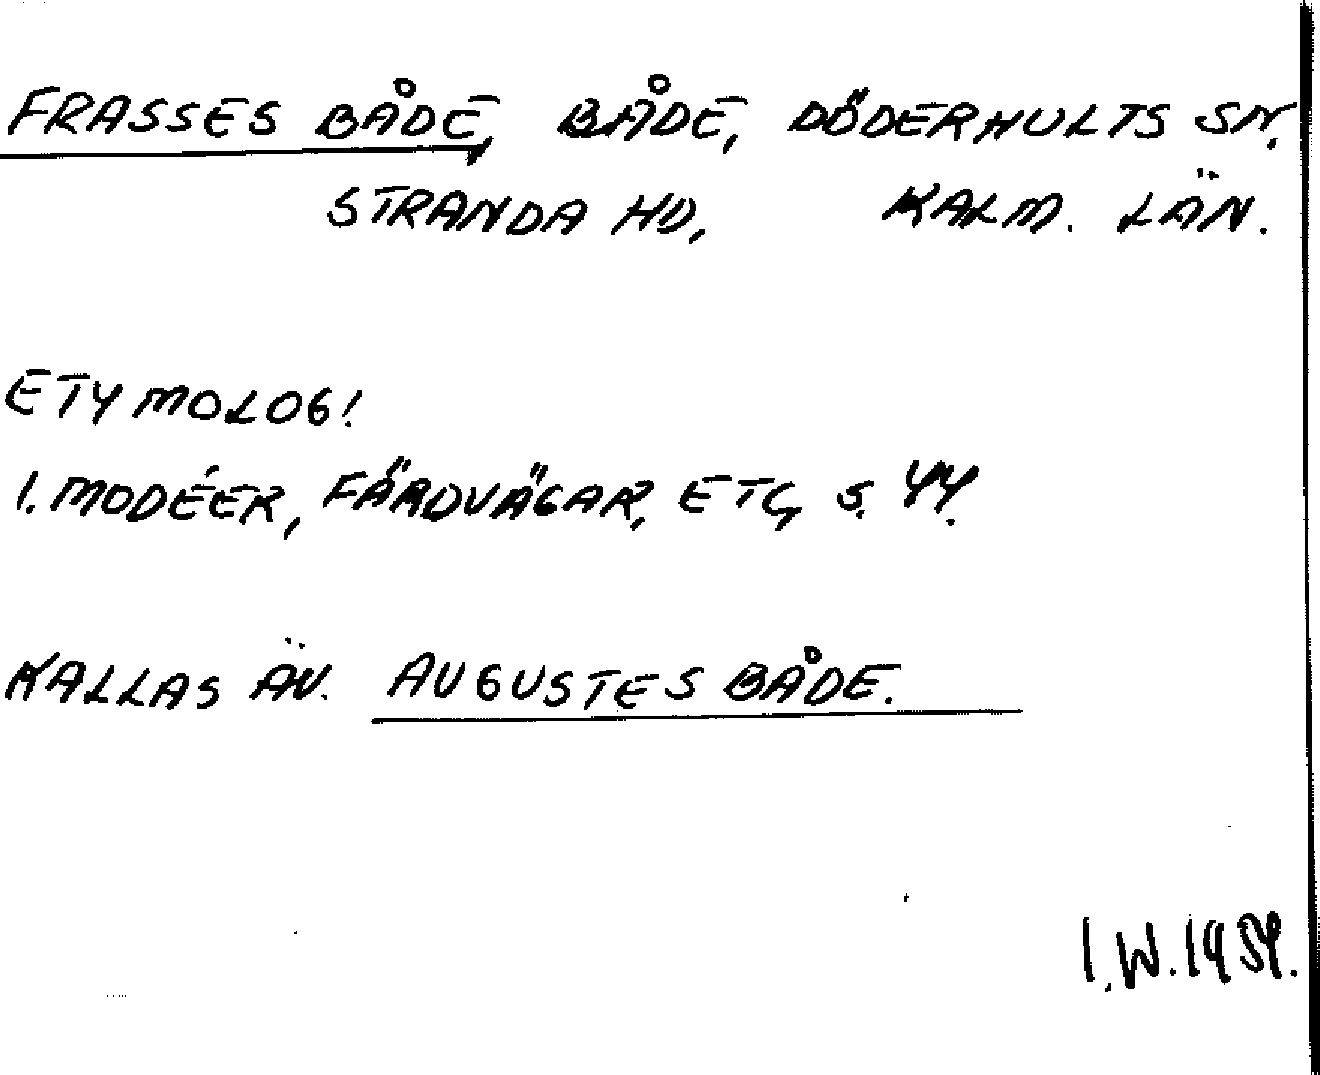 FRASSES BÅDE, BÅDE, DÖDERHULTS SN.
STRANDA HD, KALM. LÄN.
ETYMOLOG!
I. MODÉER, FÄRDVÄGAR, ETC, S. 44.
KALLAS ÄV. AUGUSTES BÅDE.
I.W.